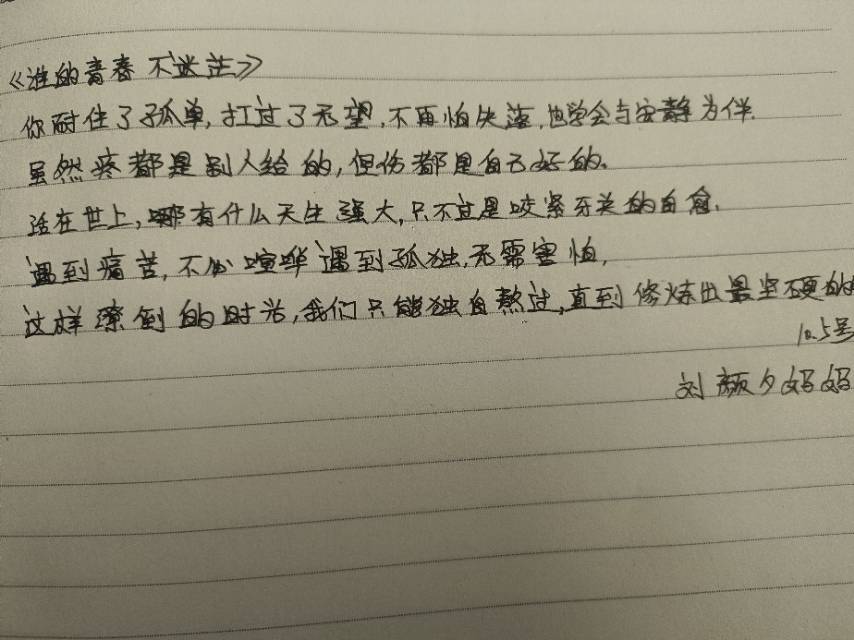 《谁的青春不迷茫》
你耐住了孤单,扛过了无望,不再怕失落,也学会与安静为伴.
虽然疼都是别人给的,但伤都是自己好的。
活在世上,哪有什么天生强大,只不过是咬紧牙关的自愈.
遇到痛苦,不必喧哗遇到孤独,无需害怕,
这样潦倒的时光,我们只能独自熬过,直到修炼出最坚硬的
10.5号
刘颜夕妈妈